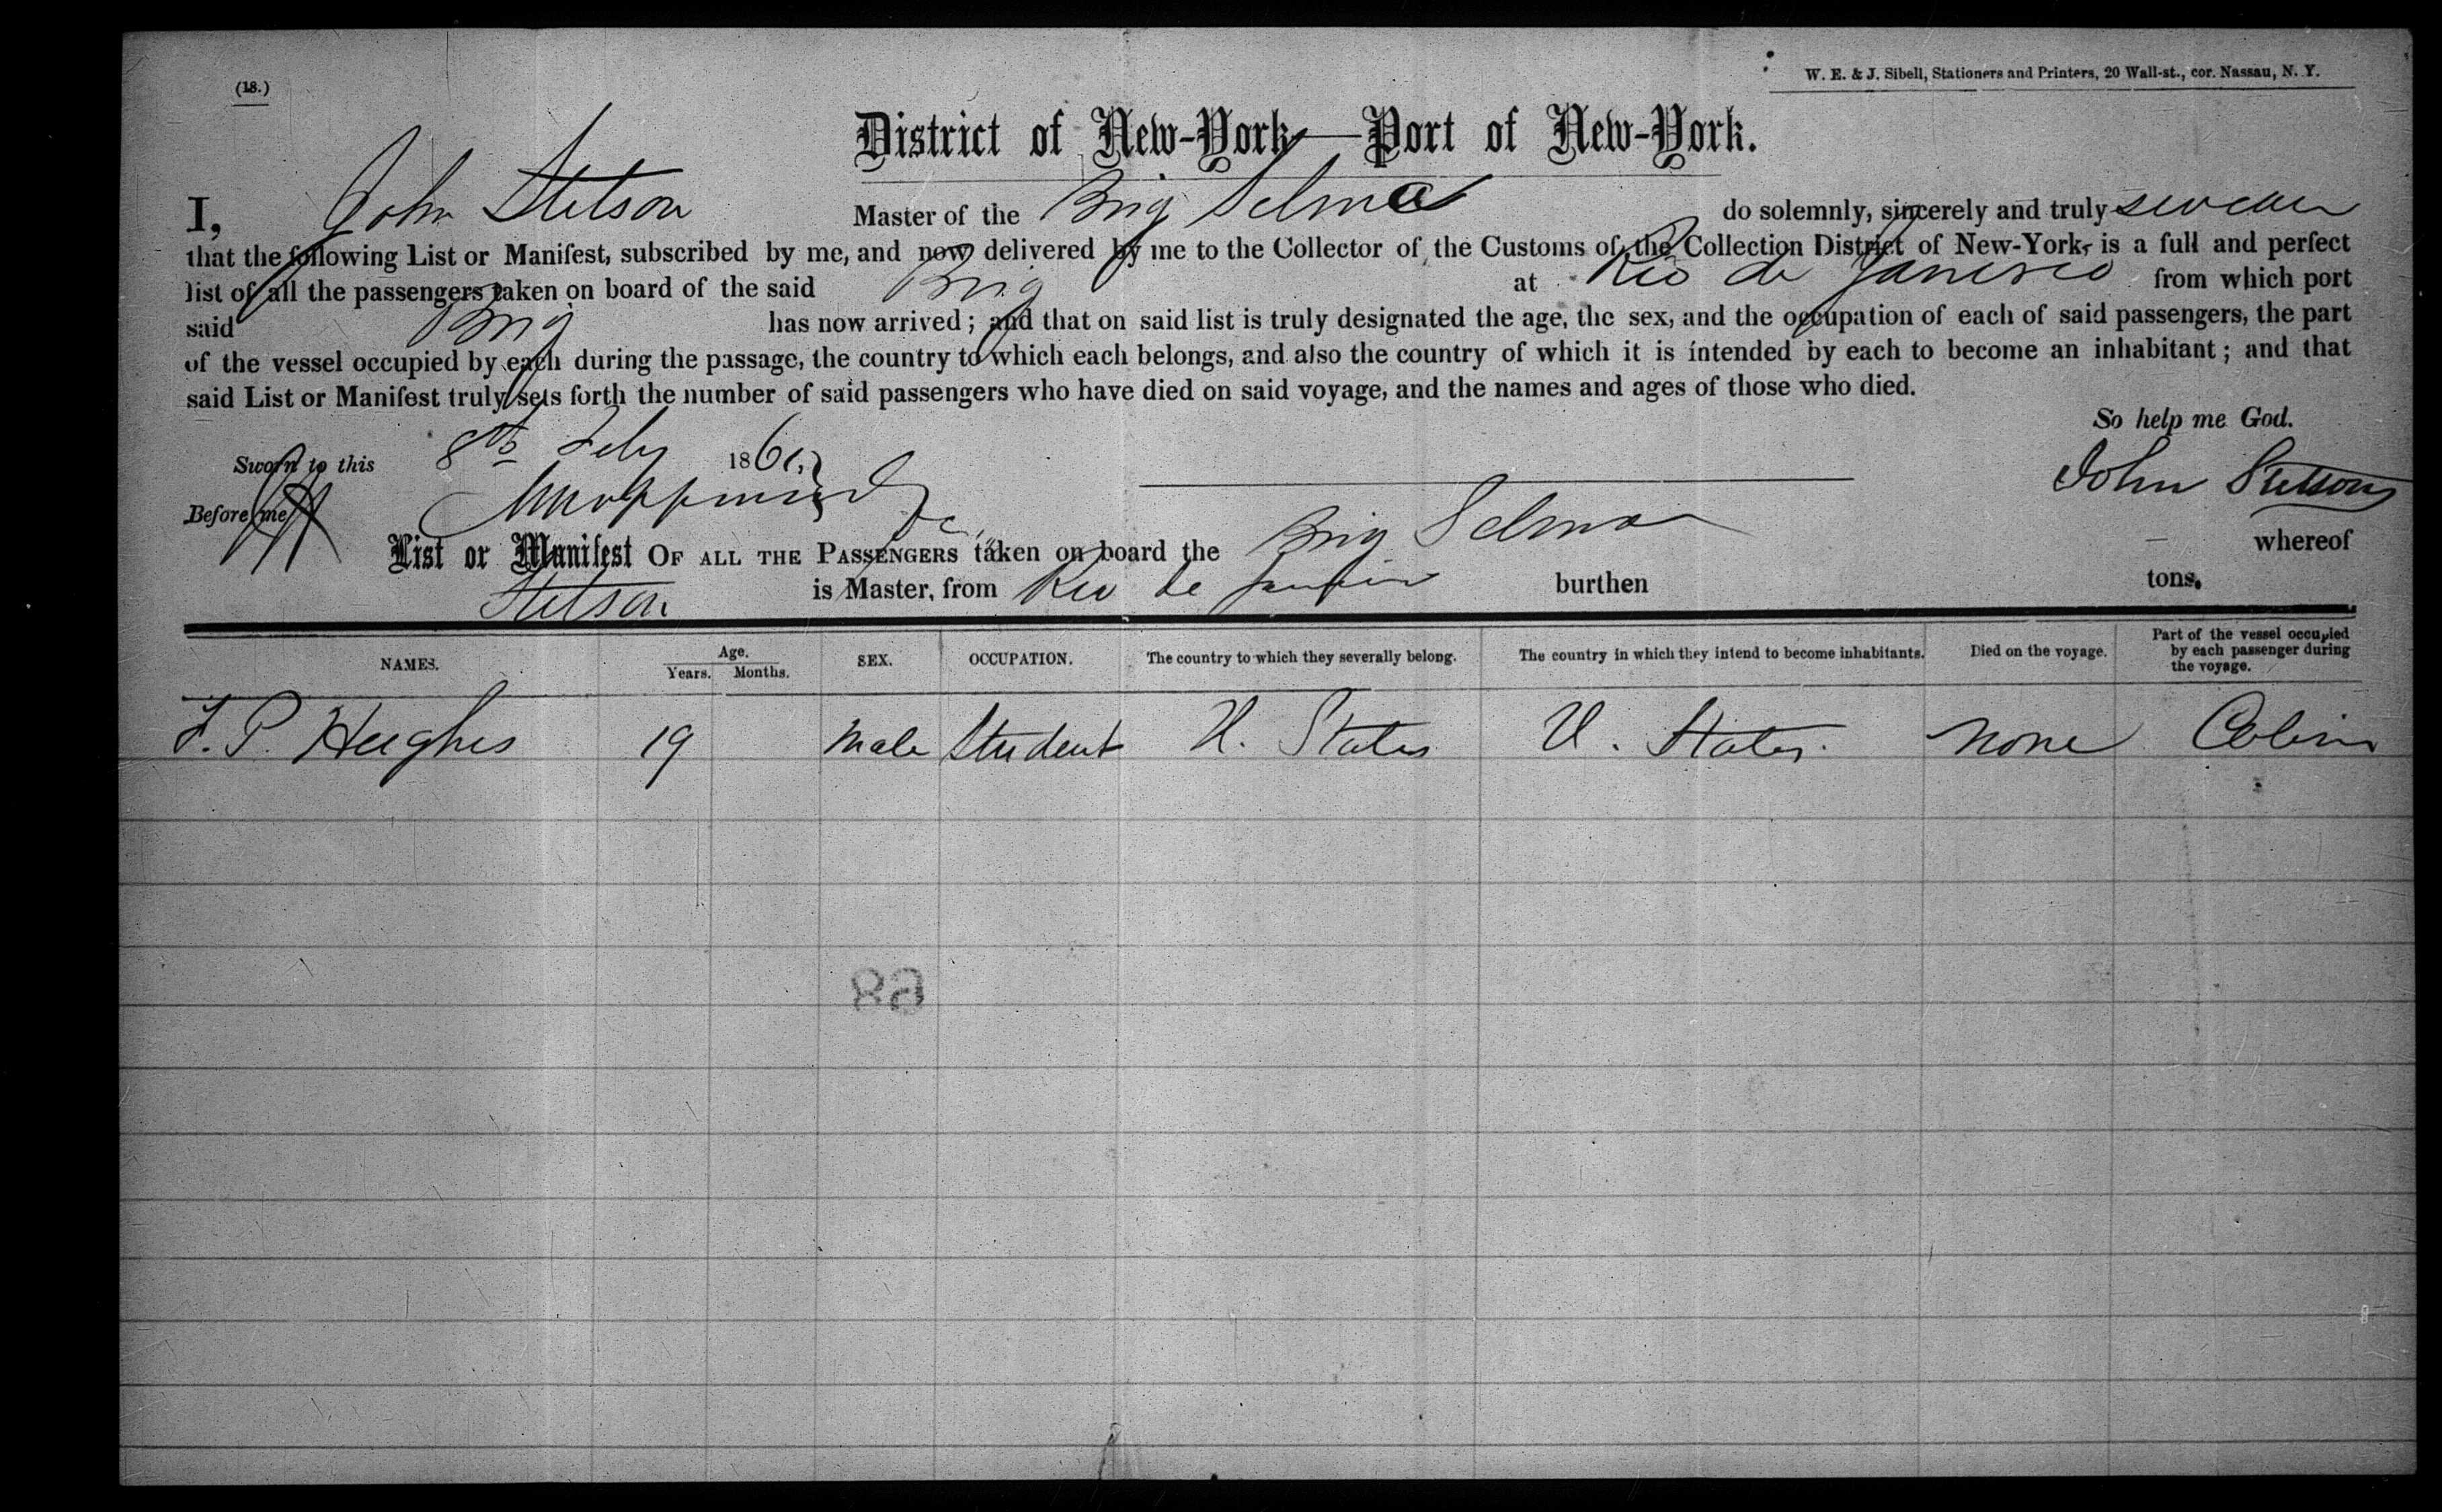 (18.)
W. E. & J. Sibell, Stationers and Printers, 20 Wall-st., cor. Nassau, N. Y.
District of New-York—Port of New-York.
I, John Stetson Master of the Brig Selma do solemnly, sincerely and truly swear
that the following List or Manifest, subscribed by me, and now delivered by me to the Collector of the Customs of the Collection District of New-York, is a full and perfect
list of all the passengers taken on board of the said Brig at Rio de Janeiro from which port
said Brig has now arrived; and that on said list is truly designated the age, the sex, and the occupation of each of said passengers, the part
of the vessel occupied by each during the passage, the country to which each belongs, and also the country of which it is intended by each to become an inhabitant; and that
said List or Manifest truly sets forth the number of said passengers who have died on said voyage, and the names and ages of those who died.
So help me God.
Sworn to this 8th Feby 186
John Stetson
Before me
List or Manifest OF ALL THE PASSENGERS taken on board the Brig Selma whereof
Stetson is Master, from Rio de Janeiro burthen tons.
NAMES. Age. Years. Months. SEX. OCCUPATION. The country to which they severally belong. The country in which they intend to become inhabitants. Died on the voyage. Part of the vessel occupied by each passenger during the voyage.
F. P. Hughes 19 Male Student U. States U. States. None Cabin